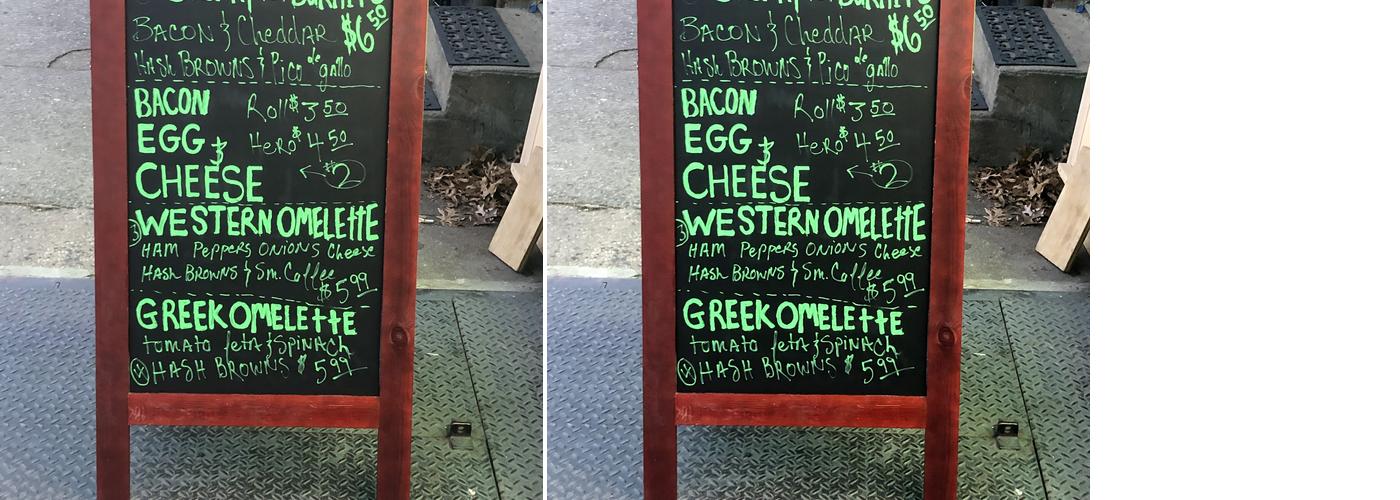 BURRITO
BACON & Cheddar $6 50
HASH BROWNS & Pico de gallo
BACON Roll $3 50
EGG & Hero $4 50
CHEESE ← $2
WESTERN OMELETTE
HAM Peppers ONIONS Cheese
HASH BROWNS & Sm. Coffee
$5 99
GREEK OMELETTE
tomato feta & SPINACH
HASH BROWNS $5 99
BURRITO
BACON & Cheddar $6 50
HASH BROWNS & Pico de gallo
BACON Roll $3 50
EGG & Hero $4 50
CHEESE ← $2
WESTERN OMELETTE
HAM Peppers ONIONS Cheese
HASH BROWNS & Sm. Coffee
$5 99
GREEK OMELETTE
tomato feta & SPINACH
HASH BROWNS $5 99